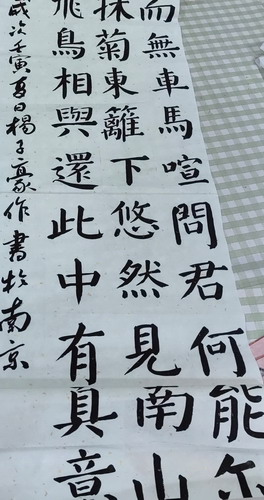 而無車馬喧問君何能尔
採菊東籬下悠然見南山
飛鳥相與還此中有真意
歲次壬寅夏日楊子豪作書於南京